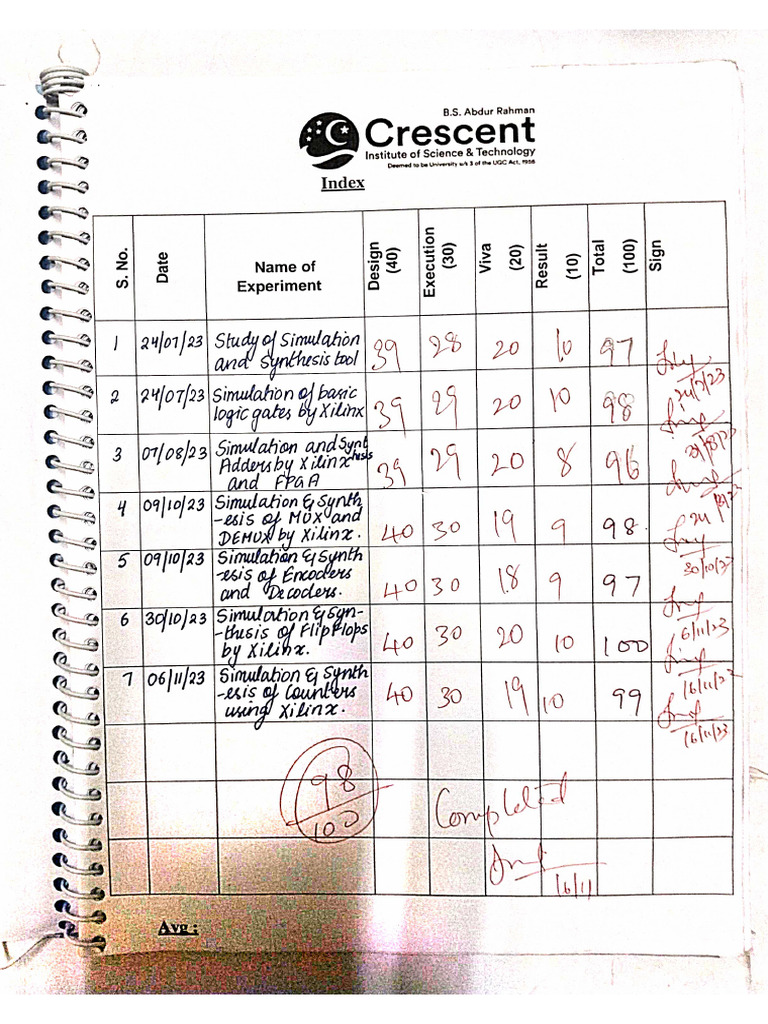 B.S. Abdur Rahman
Crescent
Institute of Science & Technology
Deemed to be University u/s 3 of the UGC Act, 1956
Index
S. No. Date Name of Experiment Design (40) Execution (30) Viva (20) Result (10) Total (100) Sign
1 24/07/23 Study of Simulation 39 28 20 10 97
and Synthesis tool
2 24/07/23 Simulation of basic 39 29 20 10 98 24/7/23
logic gates by Xilinx
3 07/08/23 Simulation and Synt 39 29 20 8 96
Adders by Xilinx thesis
and FPGA
4 09/10/23 Simulation & Synth 40 30 19 9 98
-esis of MUX and
DEMUX by Xilinx.
5 09/10/23 Simulation & Synth 40 30 18 9 97 30/10/23
-esis of Encoders
and Decoders.
6 30/10/23 Simulation & Syn- 40 30 20 10 100 6/11/23
-thesis of FlipFlops
by Xilinx.
7 06/11/23 Simulation & Synth 40 30 19 10 99 16/11/23
-esis of Counters
using Xilinx.
16/11/23
98
100
Completed
16/11
Avg :